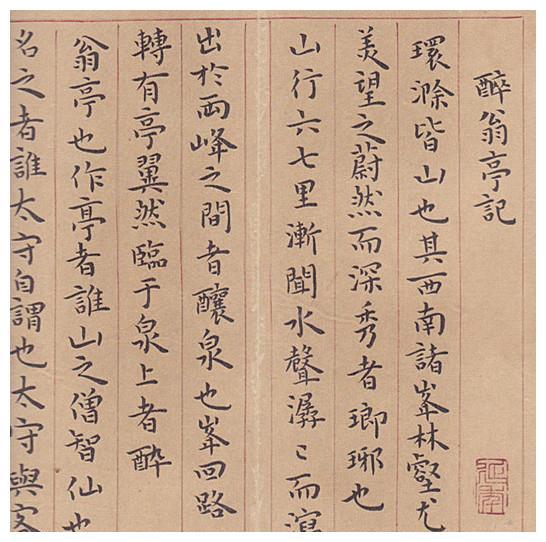 醉翁亭記
環滁皆山也其西南諸峯林壑尤
美望之蔚然而深秀者瑯琊也
山行六七里漸聞水聲潺〻而瀉
出於兩峰之間者釀泉也峯回路
轉有亭翼然臨于泉上者醉
翁亭也作亭者誰山之僧智仙也
名之者誰太守自謂也太守與客